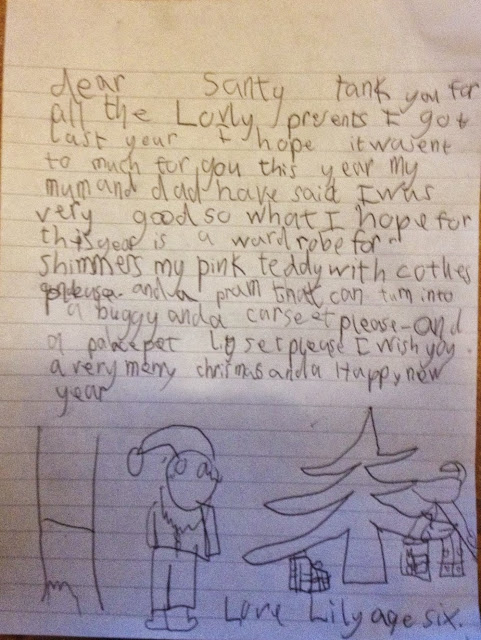 dear Santy tank you for
all the Lovly presents I got
last year I hope it wasent
to much for you this year my
mum and dad have said I was
very good so what I hope for
this year is a wardrobe for
shimmers my pink teddy with cothes
and a pram that can turn into
a buggy and a carseet please - and
a palacepet set please I wish you
a very merry chrismas and a Happy new
year
Love Lily age six.